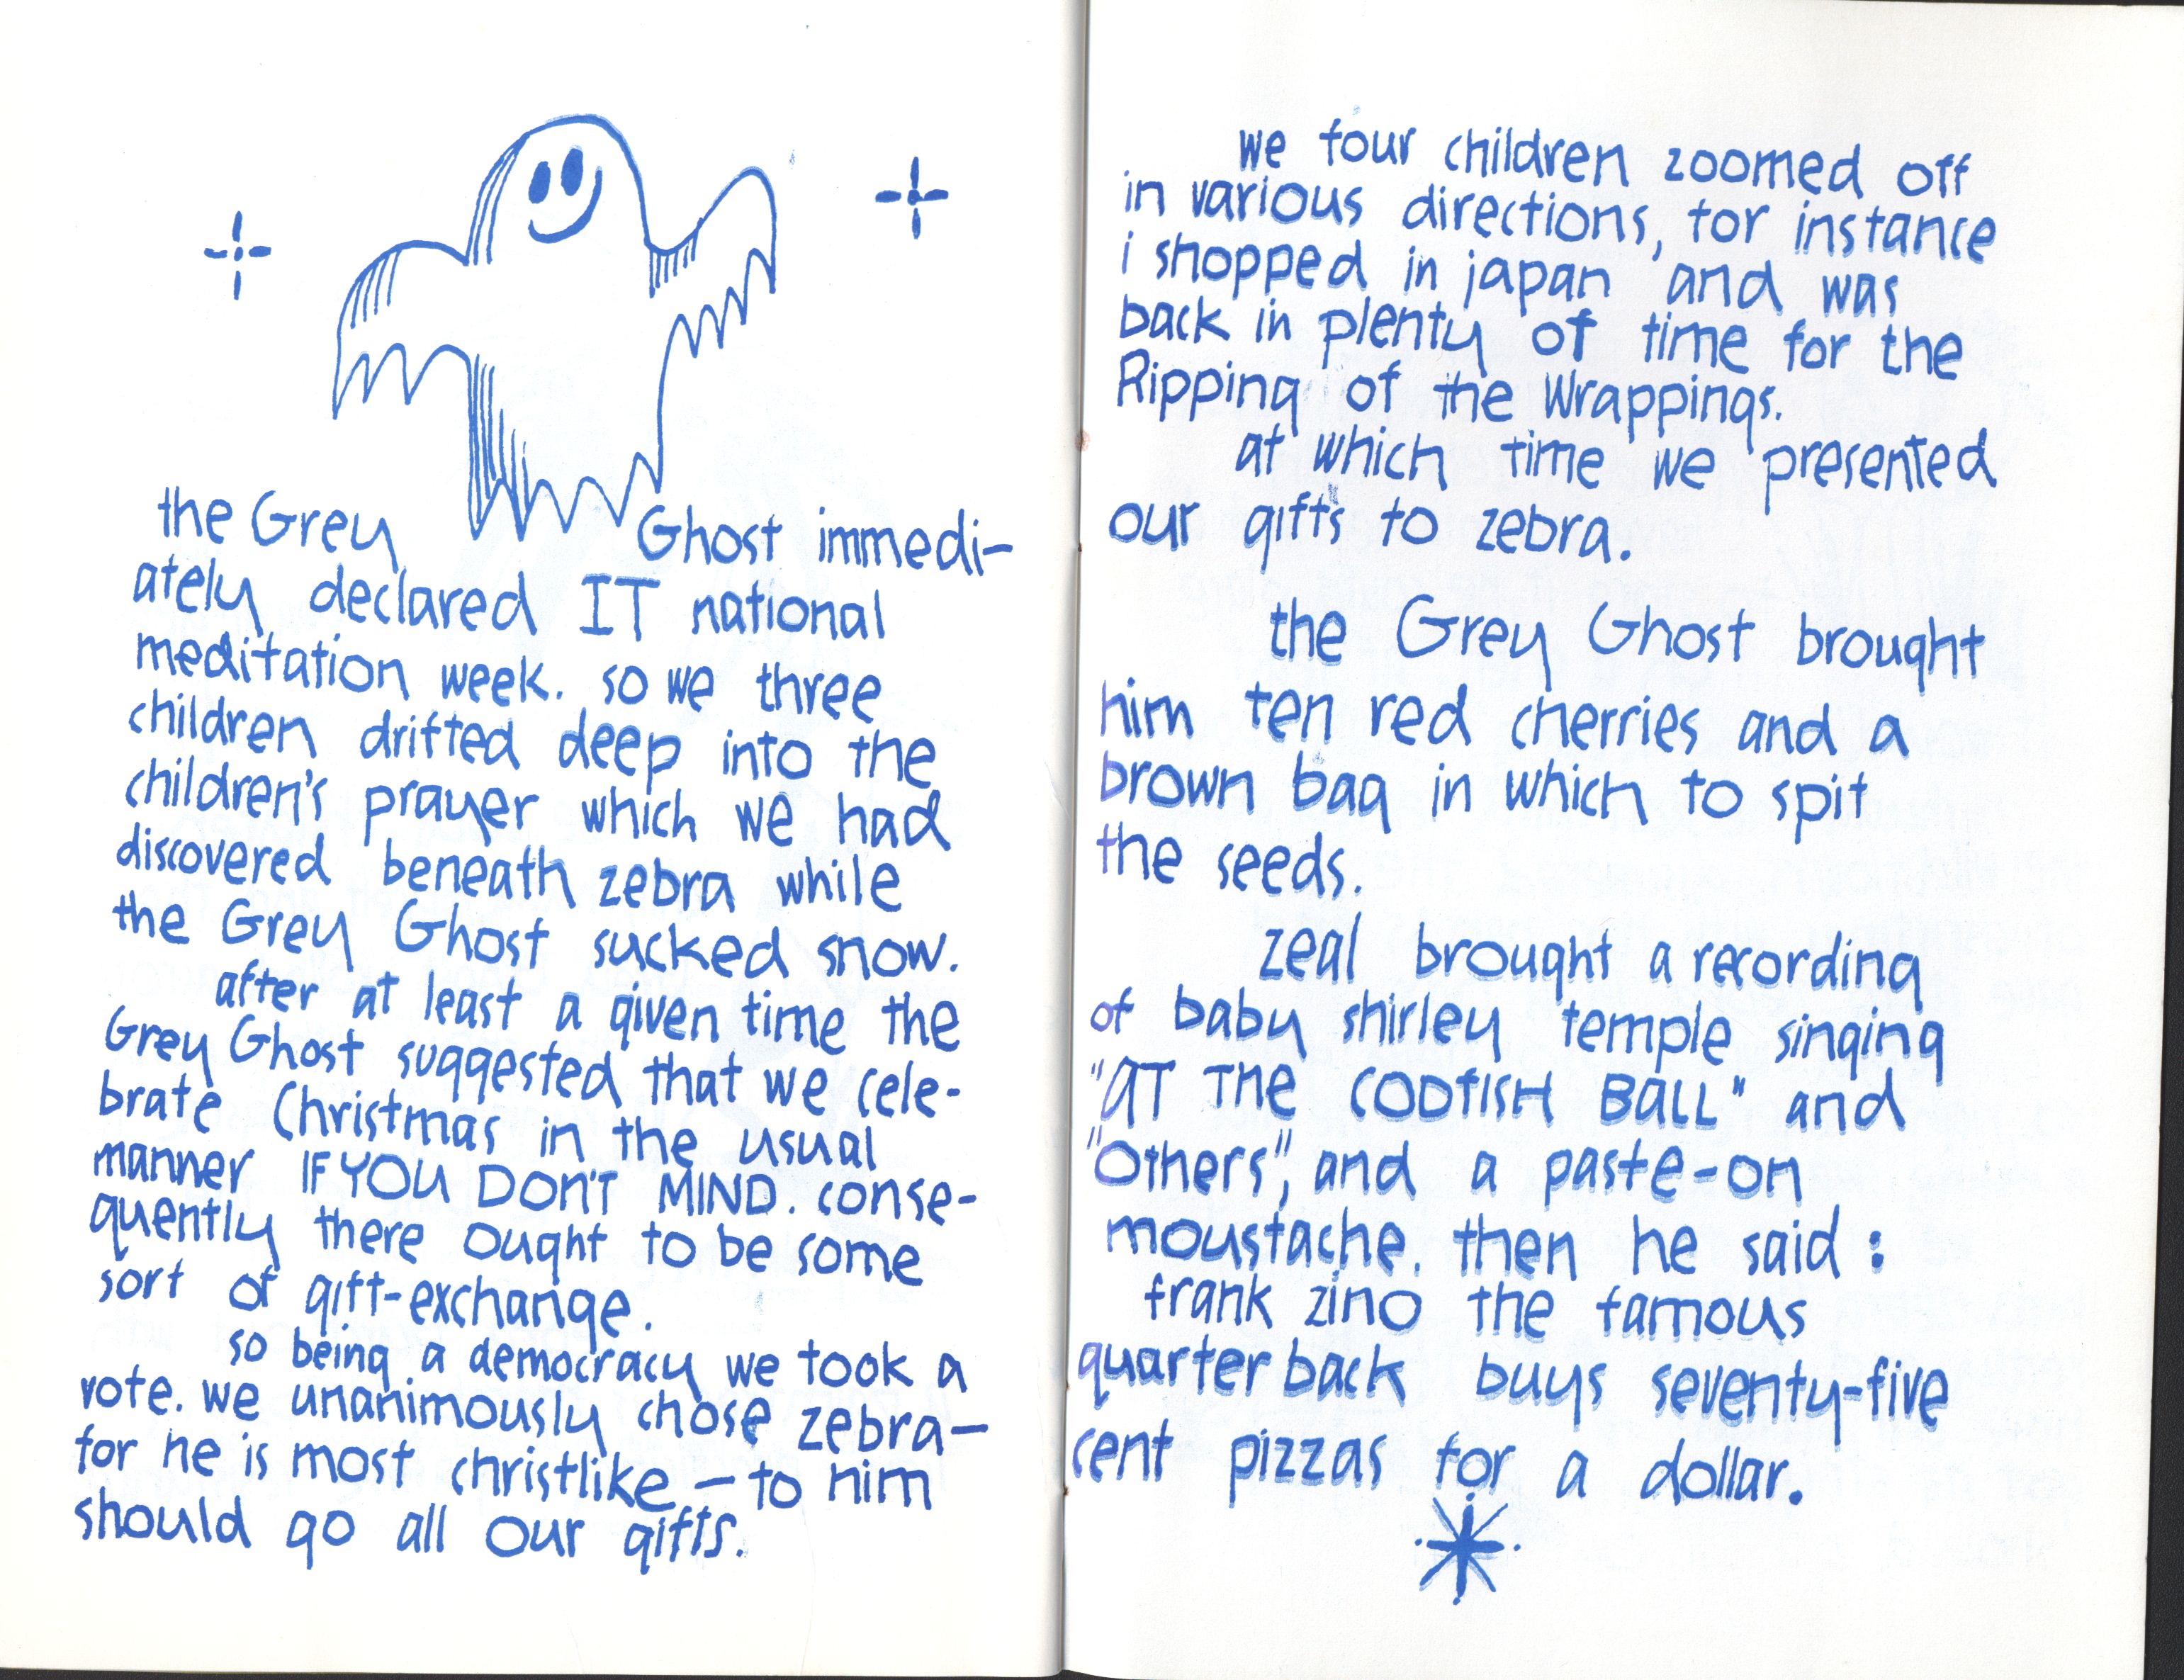 the Grey Ghost immedi-
ately declared IT national
meditation week. so we three
children drifted deep into the
children's prayer which we had
discovered beneath zebra while
the Grey Ghost sucked snow.
after at least a given time the
Grey Ghost suggested that we cele-
brate Christmas in the usual
manner IF YOU DON'T MIND. conse-
quently there ought to be some
sort of gift-exchange.
so being a democracy we took a
vote. we unanimously chose zebra—
for he is most christlike — to him
should go all our gifts.
we four children zoomed off
in various directions, for instance
i shopped in japan and was
back in plenty of time for the
Ripping of the Wrappings.
at which time we presented
our gifts to zebra.
the Grey Ghost brought
him ten red cherries and a
brown bag in which to spit
the seeds.
zeal brought a recording
of baby shirley temple singing
"AT THE CODFISH BALL" and
"Others", and a paste-on
moustache. then he said :
frank zino the famous
quarterback buys seventy-five
cent pizzas for a dollar.